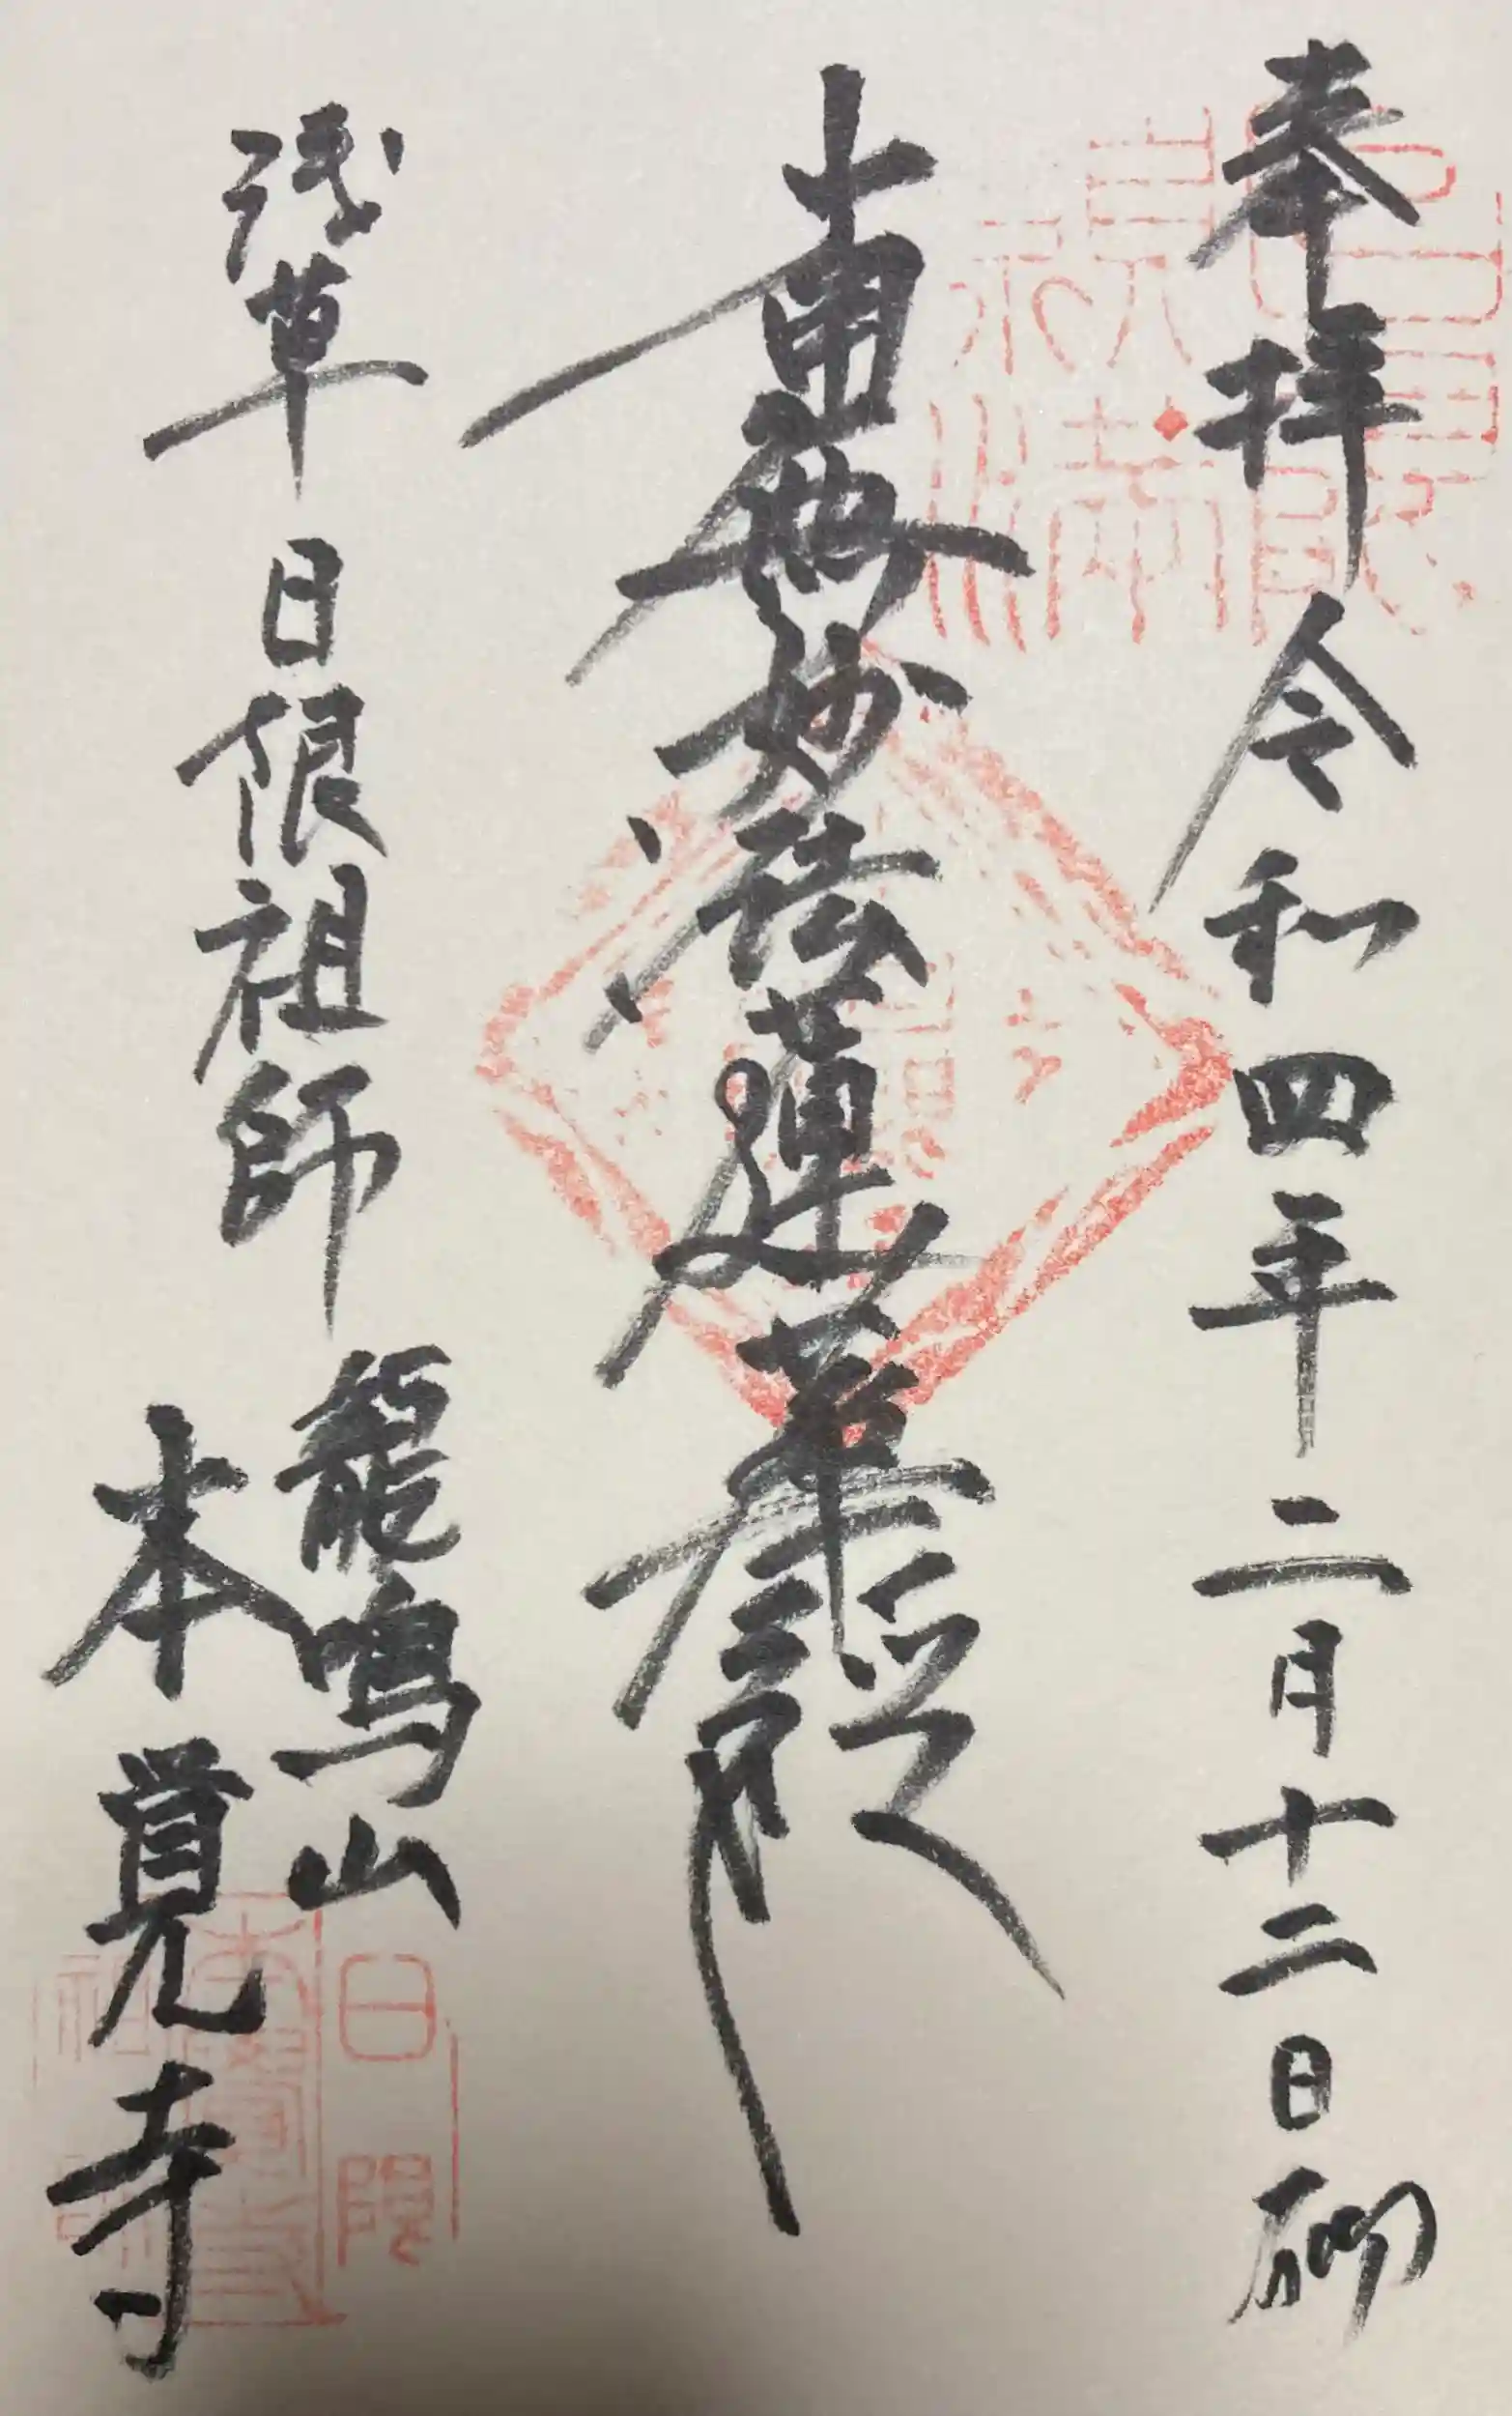 奉拝 令和四年二月十二日
南無妙法蓮華経
浅草 日限祖師
龍鳴山
本覚寺
日限
祖師
本覺寺